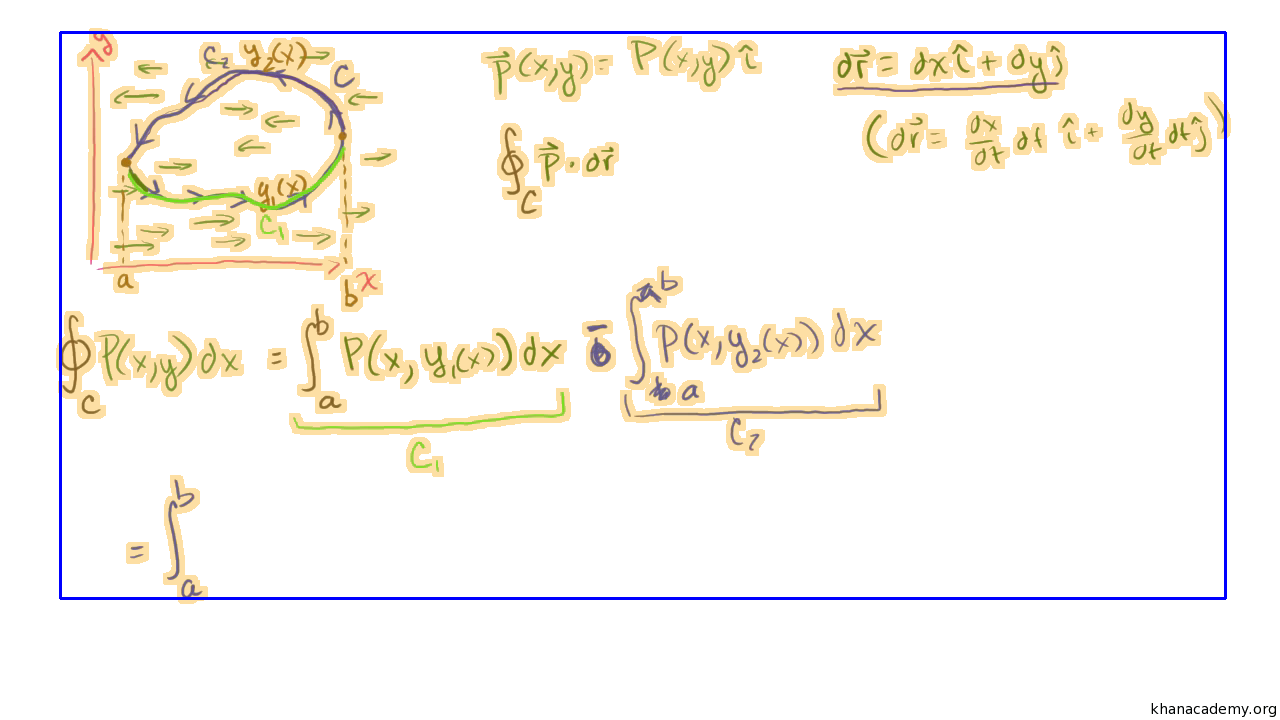 y C₂ y₂(x) C
y₁(x) C₁
a b x
P⃗(x,y) = P(x,y) î
dr⃗ = dx î + dy ĵ
(dr⃗ = dx/dt dt î + dy/dt dt ĵ)
∮_C P⃗ · dr⃗
∮_C P(x,y) dx = ∫_a^b P(x, y₁(x)) dx − ∫_a^b P(x, y₂(x)) dx
C₁ C₂
= ∫_a^b
khanacademy.org